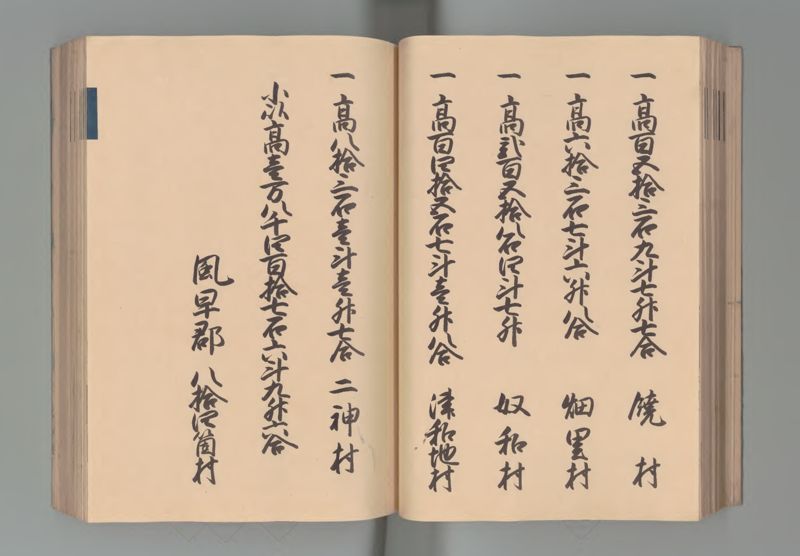 一高百五拾三石九斗七升七合 饒村
一高六拾三石七斗六升八合 畑里村
一高弐百五拾八石四斗七升 奴和村
一高百四拾五石七斗壱升八合 津和地村
一高八拾三石壱斗壱升七合 二神村
小以高壱万八千四百拾七石六斗九升六合
風早郡 八拾四箇村